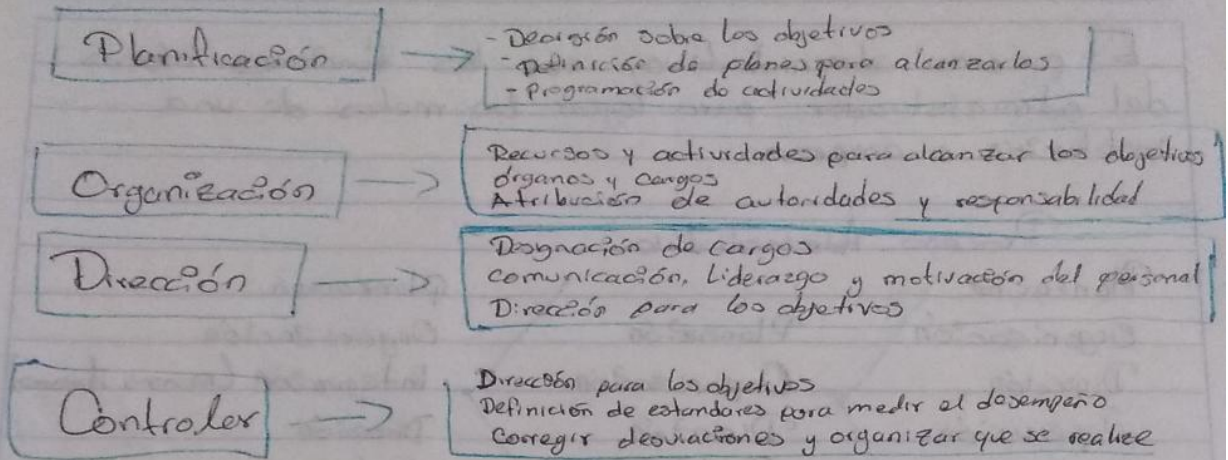 Planificación
- Decisión sobre los objetivos
- Definición de planes para alcanzarlos
- Programación de actividades
Organización
Recursos y actividades para alcanzar los objetivos
órganos y cargos
Atribución de autoridades y responsabilidad
Dirección
Designación de cargos
comunicación, Liderazgo y motivación del personal
Dirección para los objetivos
Controler
Dirección para los objetivos
Definición de estandares para medir el desempeño
Corregir desviaciones y organizar que se realice